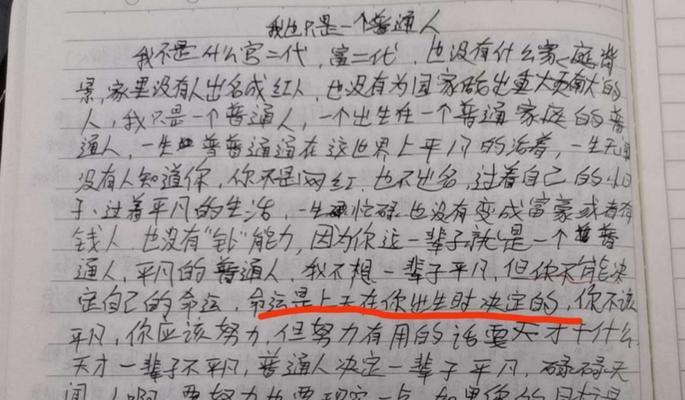 我也只是一个普通人
我不是什么官二代,富二代,也没有什么家庭背
景,家里没有人出名成红人,也没有为国家做出重大贡献的
人,我只是一个普通人,一个出生在一个普通家庭的普
通人,一生普普通通在这世界上平凡的活着,一生无
没有人知道你,你不是网红,也不出名,过着自己的小日
子,过着平凡的生活,一生忙碌也没有变成富豪或者有
钱人,也没有“钞”能力,因为你这一辈子就是一个普
通人,平凡的普通人,我不想一辈子平凡,但你不可能决
定自己的命运,命运是上天在你出生时决定的,你不该
平凡,你应该努力,但努力有用的话要天才干什么
天才一辈子不平凡,普通人决定一辈子平凡,碌碌无
闻,人啊,要努力也要现实一点,如果你的目标是